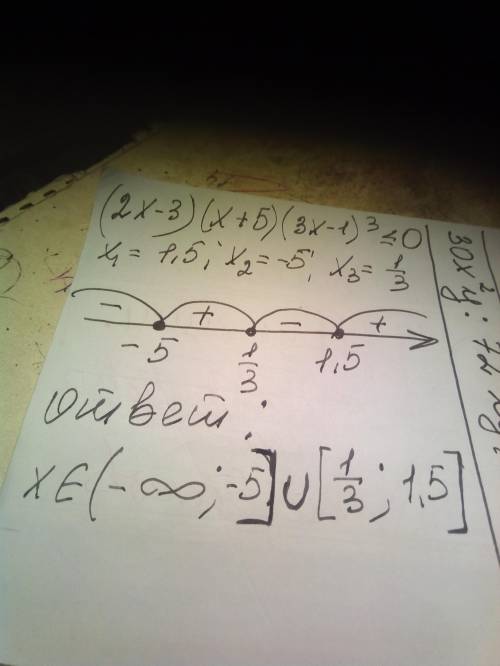 (2x-3)(x+5)(3x-1)³≤0
x₁=1,5; x₂=-5; x₃=1/3
- + - +
-5 1/3 1,5
Ответ:
x∈(-∞;-5]∪[1/3;1,5]